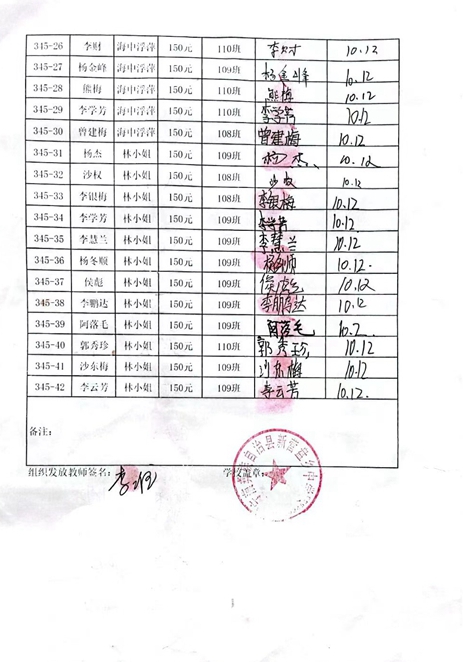 345-26 李财 海中浮萍 150元 110班 李财 10.12
345-27 杨金峰 海中浮萍 150元 109班 杨金峰 10.12
345-28 熊梅 海中浮萍 150元 110班 熊梅 10.12
345-29 李学芳 海中浮萍 150元 110班 李学芳 10.12
345-30 曾建梅 海中浮萍 150元 108班 曾建梅 10.12
345-31 杨杰 林小姐 150元 109班 杨杰 10.12
345-32 沙权 林小姐 150元 108班 沙权 10.12
345-33 李银梅 林小姐 150元 108班 李银梅 10.12
345-34 李学芳 林小姐 150元 109班 李学芳 10.12
345-35 李慧兰 林小姐 150元 109班 李慧兰 10.12
345-36 杨冬顺 林小姐 150元 109班 杨冬顺 10.12.
345-37 侯彪 林小姐 150元 109班 侯彪 10.12
345-38 李鹏达 林小姐 150元 109班 李鹏达 10.12
345-39 阿落毛 林小姐 150元 109班 阿落毛 10.7.
345-40 郭秀珍 林小姐 150元 110班 郭秀珍 10.12
345-41 沙东梅 林小姐 150元 109班 沙东梅 10.12
345-42 李云芳 林小姐 150元 109班 李云芳 10.12.
备注:
组织发放教师签名: 学校盖章: